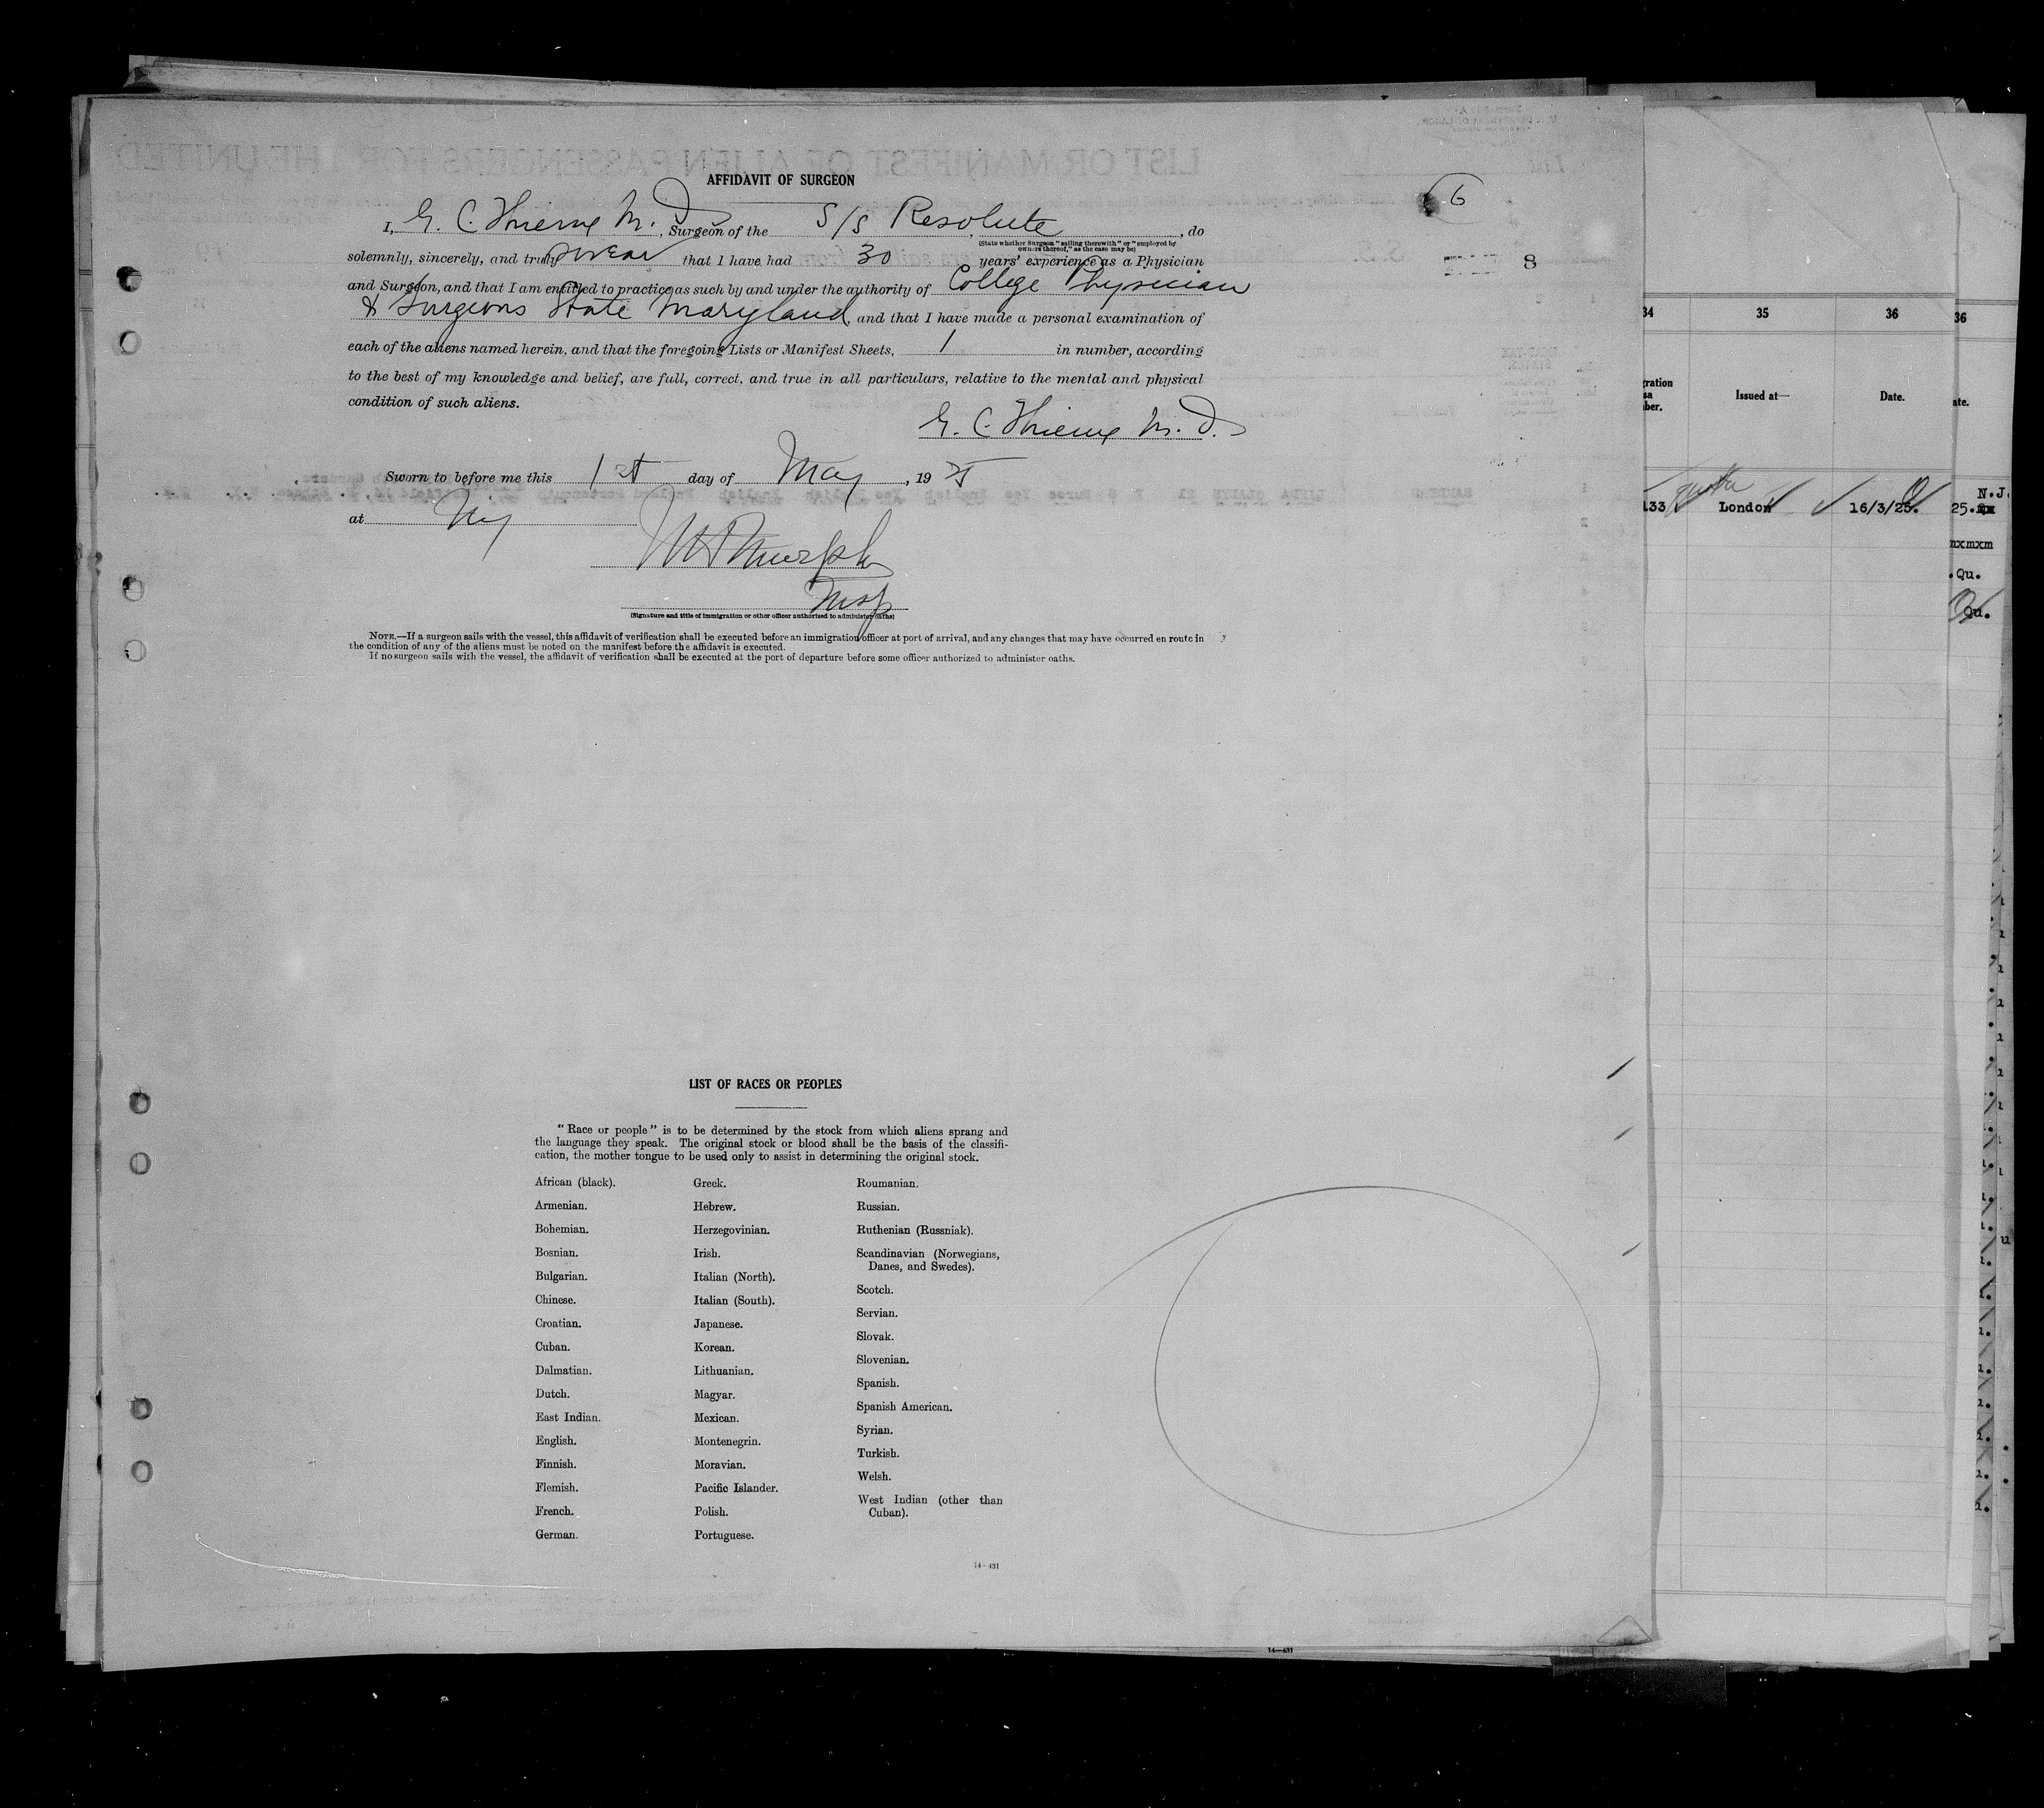 AFFIDAVIT OF SURGEON
6
I, G. C. Thieme M. D., Surgeon of the S/S Resolute, do
(State whether Surgeon "sailing therewith" or "employed by
owners thereof," as the case may be)
solemnly, sincerely, and truly swear that I have had 30 years' experience as a Physician
8
and Surgeon, and that I am entitled to practice as such by and under the authority of College Physician
& Surgeons State Maryland, and that I have made a personal examination of
each of the aliens named herein, and that the foregoing Lists or Manifest Sheets, 1 in number, according
to the best of my knowledge and belief, are full, correct, and true in all particulars, relative to the mental and physical
condition of such aliens.
G. C. Thieme M. D.
Sworn to before me this 1st day of May, 1925
at NY
Murphy
Insp
(Signature and title of immigration or other officer authorized to administer oaths)
NOTE.—If a surgeon sails with the vessel, this affidavit of verification shall be executed before an immigration officer at port of arrival, and any changes that may have occurred en route in
the condition of any of the aliens must be noted on the manifest before the affidavit is executed.
If no surgeon sails with the vessel, the affidavit of verification shall be executed at the port of departure before some officer authorized to administer oaths.
LIST OF RACES OR PEOPLES
"Race or people" is to be determined by the stock from which aliens sprang and
the language they speak. The original stock or blood shall be the basis of the classifi-
cation, the mother tongue to be used only to assist in determining the original stock.
African (black).
Armenian.
Bohemian.
Bosnian.
Bulgarian.
Chinese.
Croatian.
Cuban.
Dalmatian.
Dutch.
East Indian.
English.
Finnish.
Flemish.
French.
German.
Greek.
Hebrew.
Herzegovinian.
Irish.
Italian (North).
Italian (South).
Japanese.
Korean.
Lithuanian.
Magyar.
Mexican.
Montenegrin.
Moravian.
Pacific Islander.
Polish.
Portuguese.
Roumanian.
Russian.
Ruthenian (Russniak).
Scandinavian (Norwegians,
Danes, and Swedes).
Scotch.
Servian.
Slovak.
Slovenian.
Spanish.
Spanish American.
Syrian.
Turkish.
Welsh.
West Indian (other than
Cuban).
14-431
14-431
34 35 36
Issued at— Date.
133 London 16/3/25.
36
ate.
N.J.
25.
Qu.
Qu.